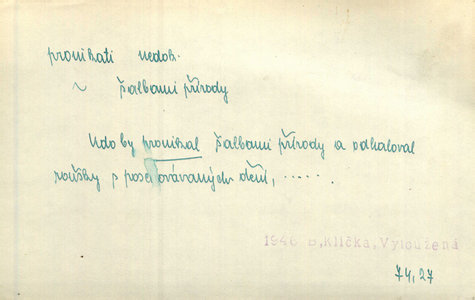 pronikati nedok.
~ šalbami přírody
Kdo by pronikal šalbami přírody a odhaloval
roušky s posel ovávaných dění, .....
1946 B,Klička,Vyloužená
74,27